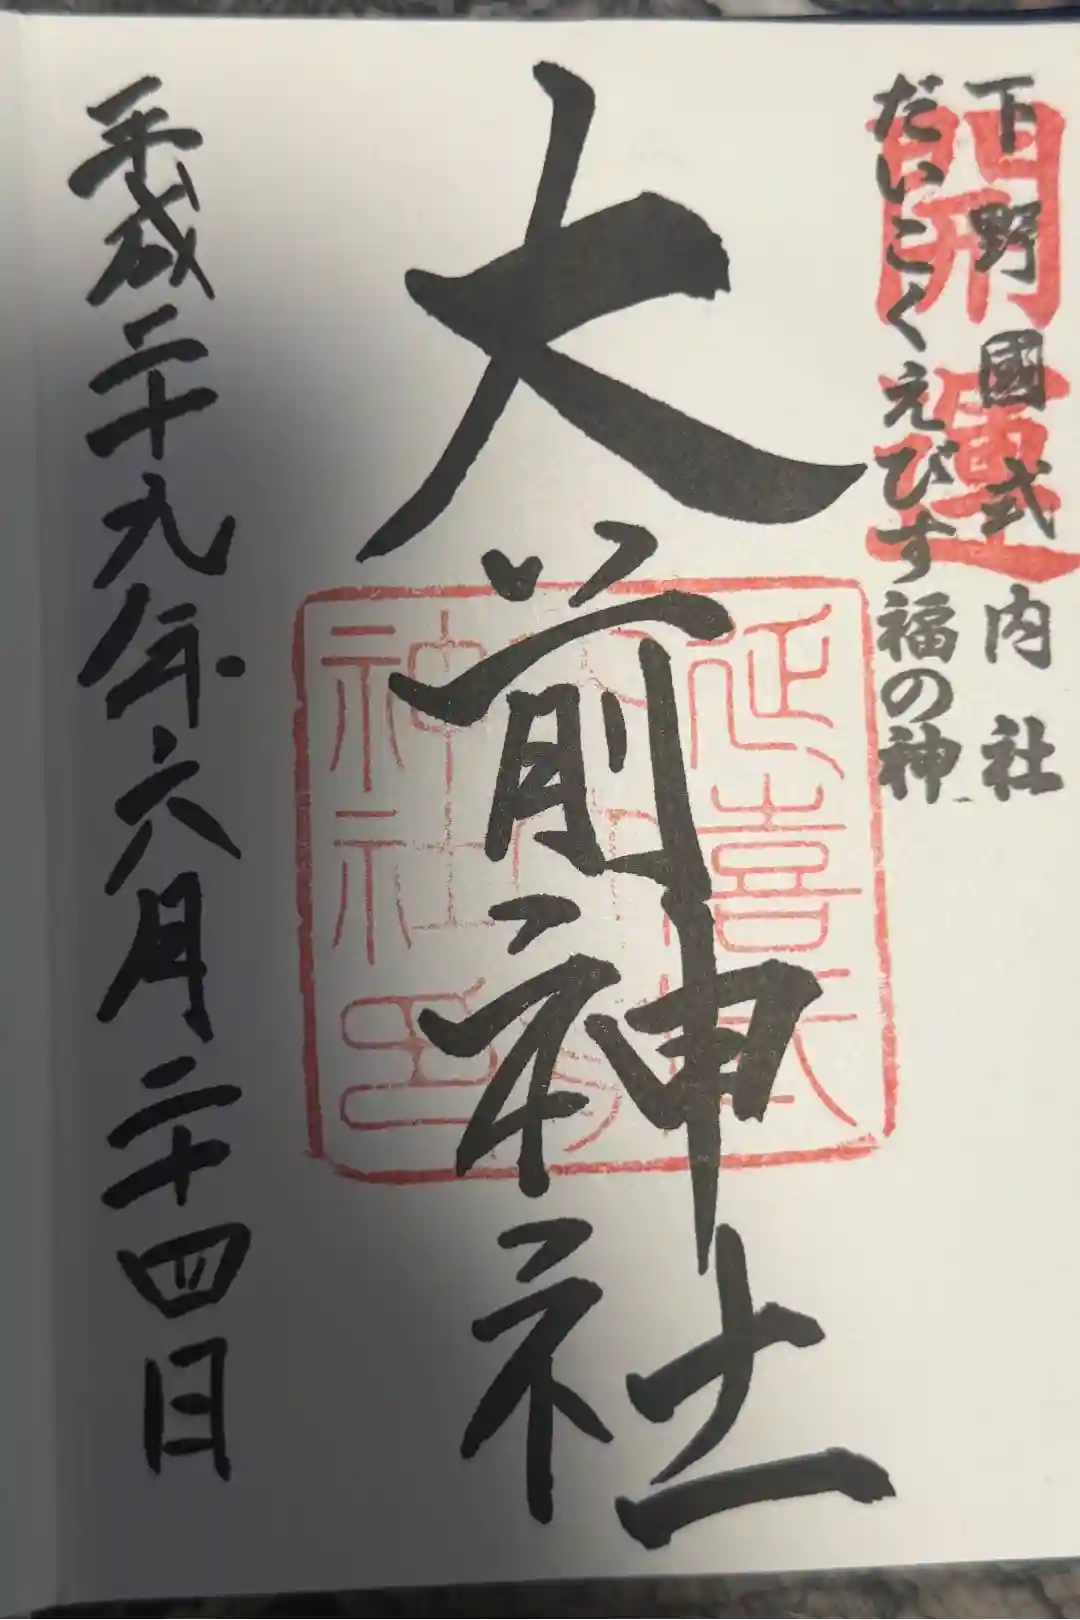 下野國式内社
だいこくえびす福の神
開運
大前神社
延喜式内
神社印
平成二十九年六月二十四日